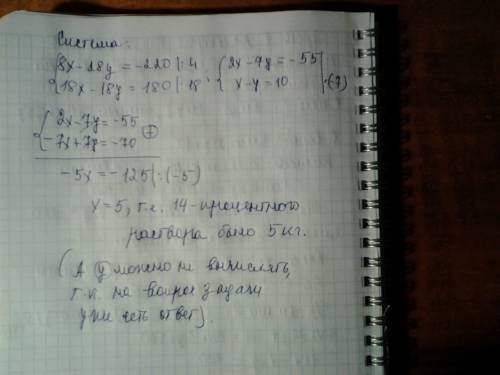 Система:
{8x-28y=-220|:4 {2x-7y=-55|
{18x-18y=180|:18 {x-y=10 |·(-7)
{2x-7y=-55
{-7x+7y=-70 ⊕
-5x=-125|:(-5)
x=5, т.е. 14-процентного
раствора было 5 кг.
(А y можно не вычислять,
т.к. на вопрос задачи
уже есть ответ).